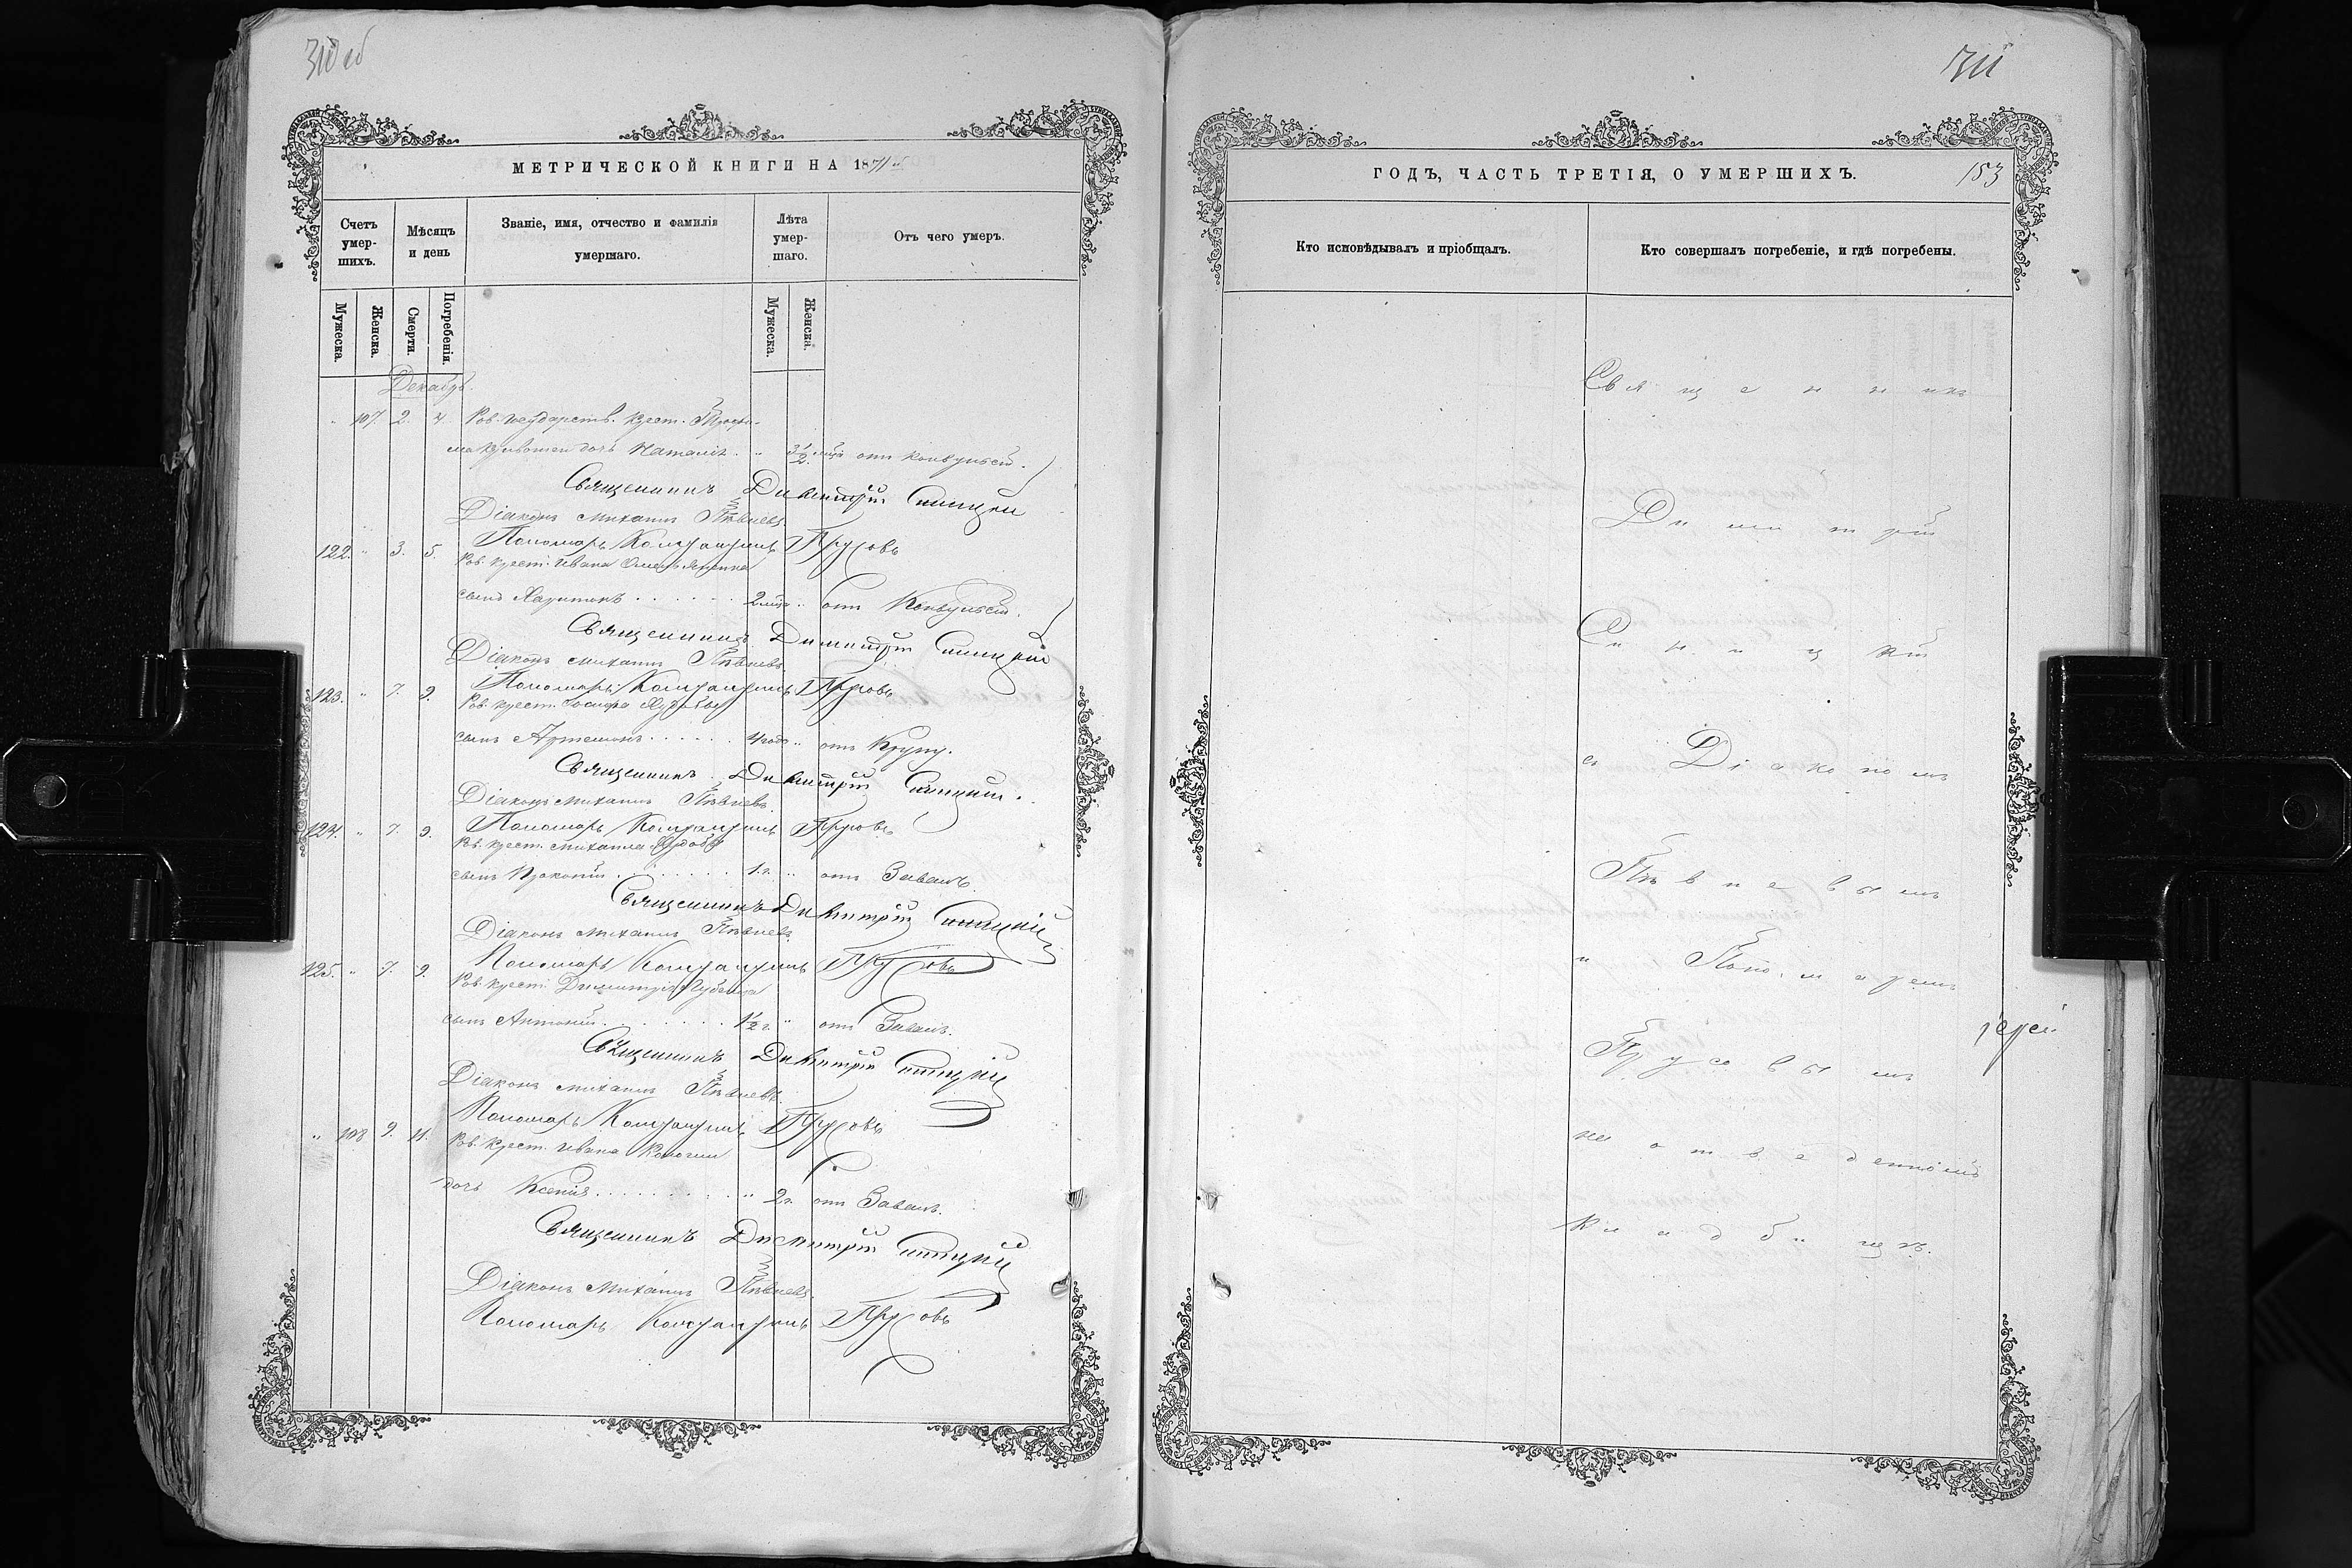 310 об
МЕТРИЧЕСКОЙ КНИГИ НА 1871 й
Счетъ умер- шихъ.
Мѣсяцъ и день
Званіе, имя, отчество и фамилія умершаго.
Лѣта умер- шаго.
Отъ чего умеръ.
Мужеска.
Женска.
Смерти.
Погребенія.
Мужеска.
Женска.
Декабрь.
" 107. 2. 4. Ков. государств. крест.
дочь Наталія. " 3 1/2 мѣся отъ конвульсій.
Священникъ Димитрій Синицкій
Діаконъ Михаилъ Пѣвневъ.
Пономарь Константинъ Прусовъ
122. " 3. 5. крест. Ивана
сынъ Харитонъ 2 мѣся " отъ Конвульсій.
Священникъ Димитрій Синицкій
Діаконъ Михаилъ Пѣвневъ.
Пономарь Константинъ Прусовъ
123. " 7. 9. крест. Іосифа
сынъ Артемонъ 4 года " отъ Крупу.
Священникъ Димитрій Синицкій.
Діаконъ Михаилъ Пѣвневъ.
Пономарь Константинъ Прусовъ
124. " 7. 9. крест. Михаила
сынъ Прокопій 1 г. " отъ Завалъ.
Священникъ Димитрій Синицкій
Діаконъ Михаилъ Пѣвневъ.
Пономарь Константинъ Прусовъ
125. " 7. 9. крест. Димитрія
сынъ Антоній 1 1/2 г. " отъ Завалъ.
Священникъ Димитрій Синицкій
Діаконъ Михаилъ Пѣвневъ.
Пономарь Константинъ Прусовъ
" 108 9. 11. крест. Ивана
дочь Ксенія " 2 г. отъ Завалъ.
Священникъ Димитрій Синицкій
Діаконъ Михаилъ Пѣвневъ.
Пономарь Константинъ Прусовъ
311
ГОДЪ, ЧАСТЬ ТРЕТІЯ, О УМЕРШИХЪ.
153
Кто исповѣдывалъ и пріобщалъ.
Кто совершалъ погребеніе, и гдѣ погребены.
Священникъ
Димитрій
Синицкій
съ Діакономъ
Пѣвневымъ
и Пономаремъ
Іерей
Прусовымъ
на отведенномъ
кладбищѣ.